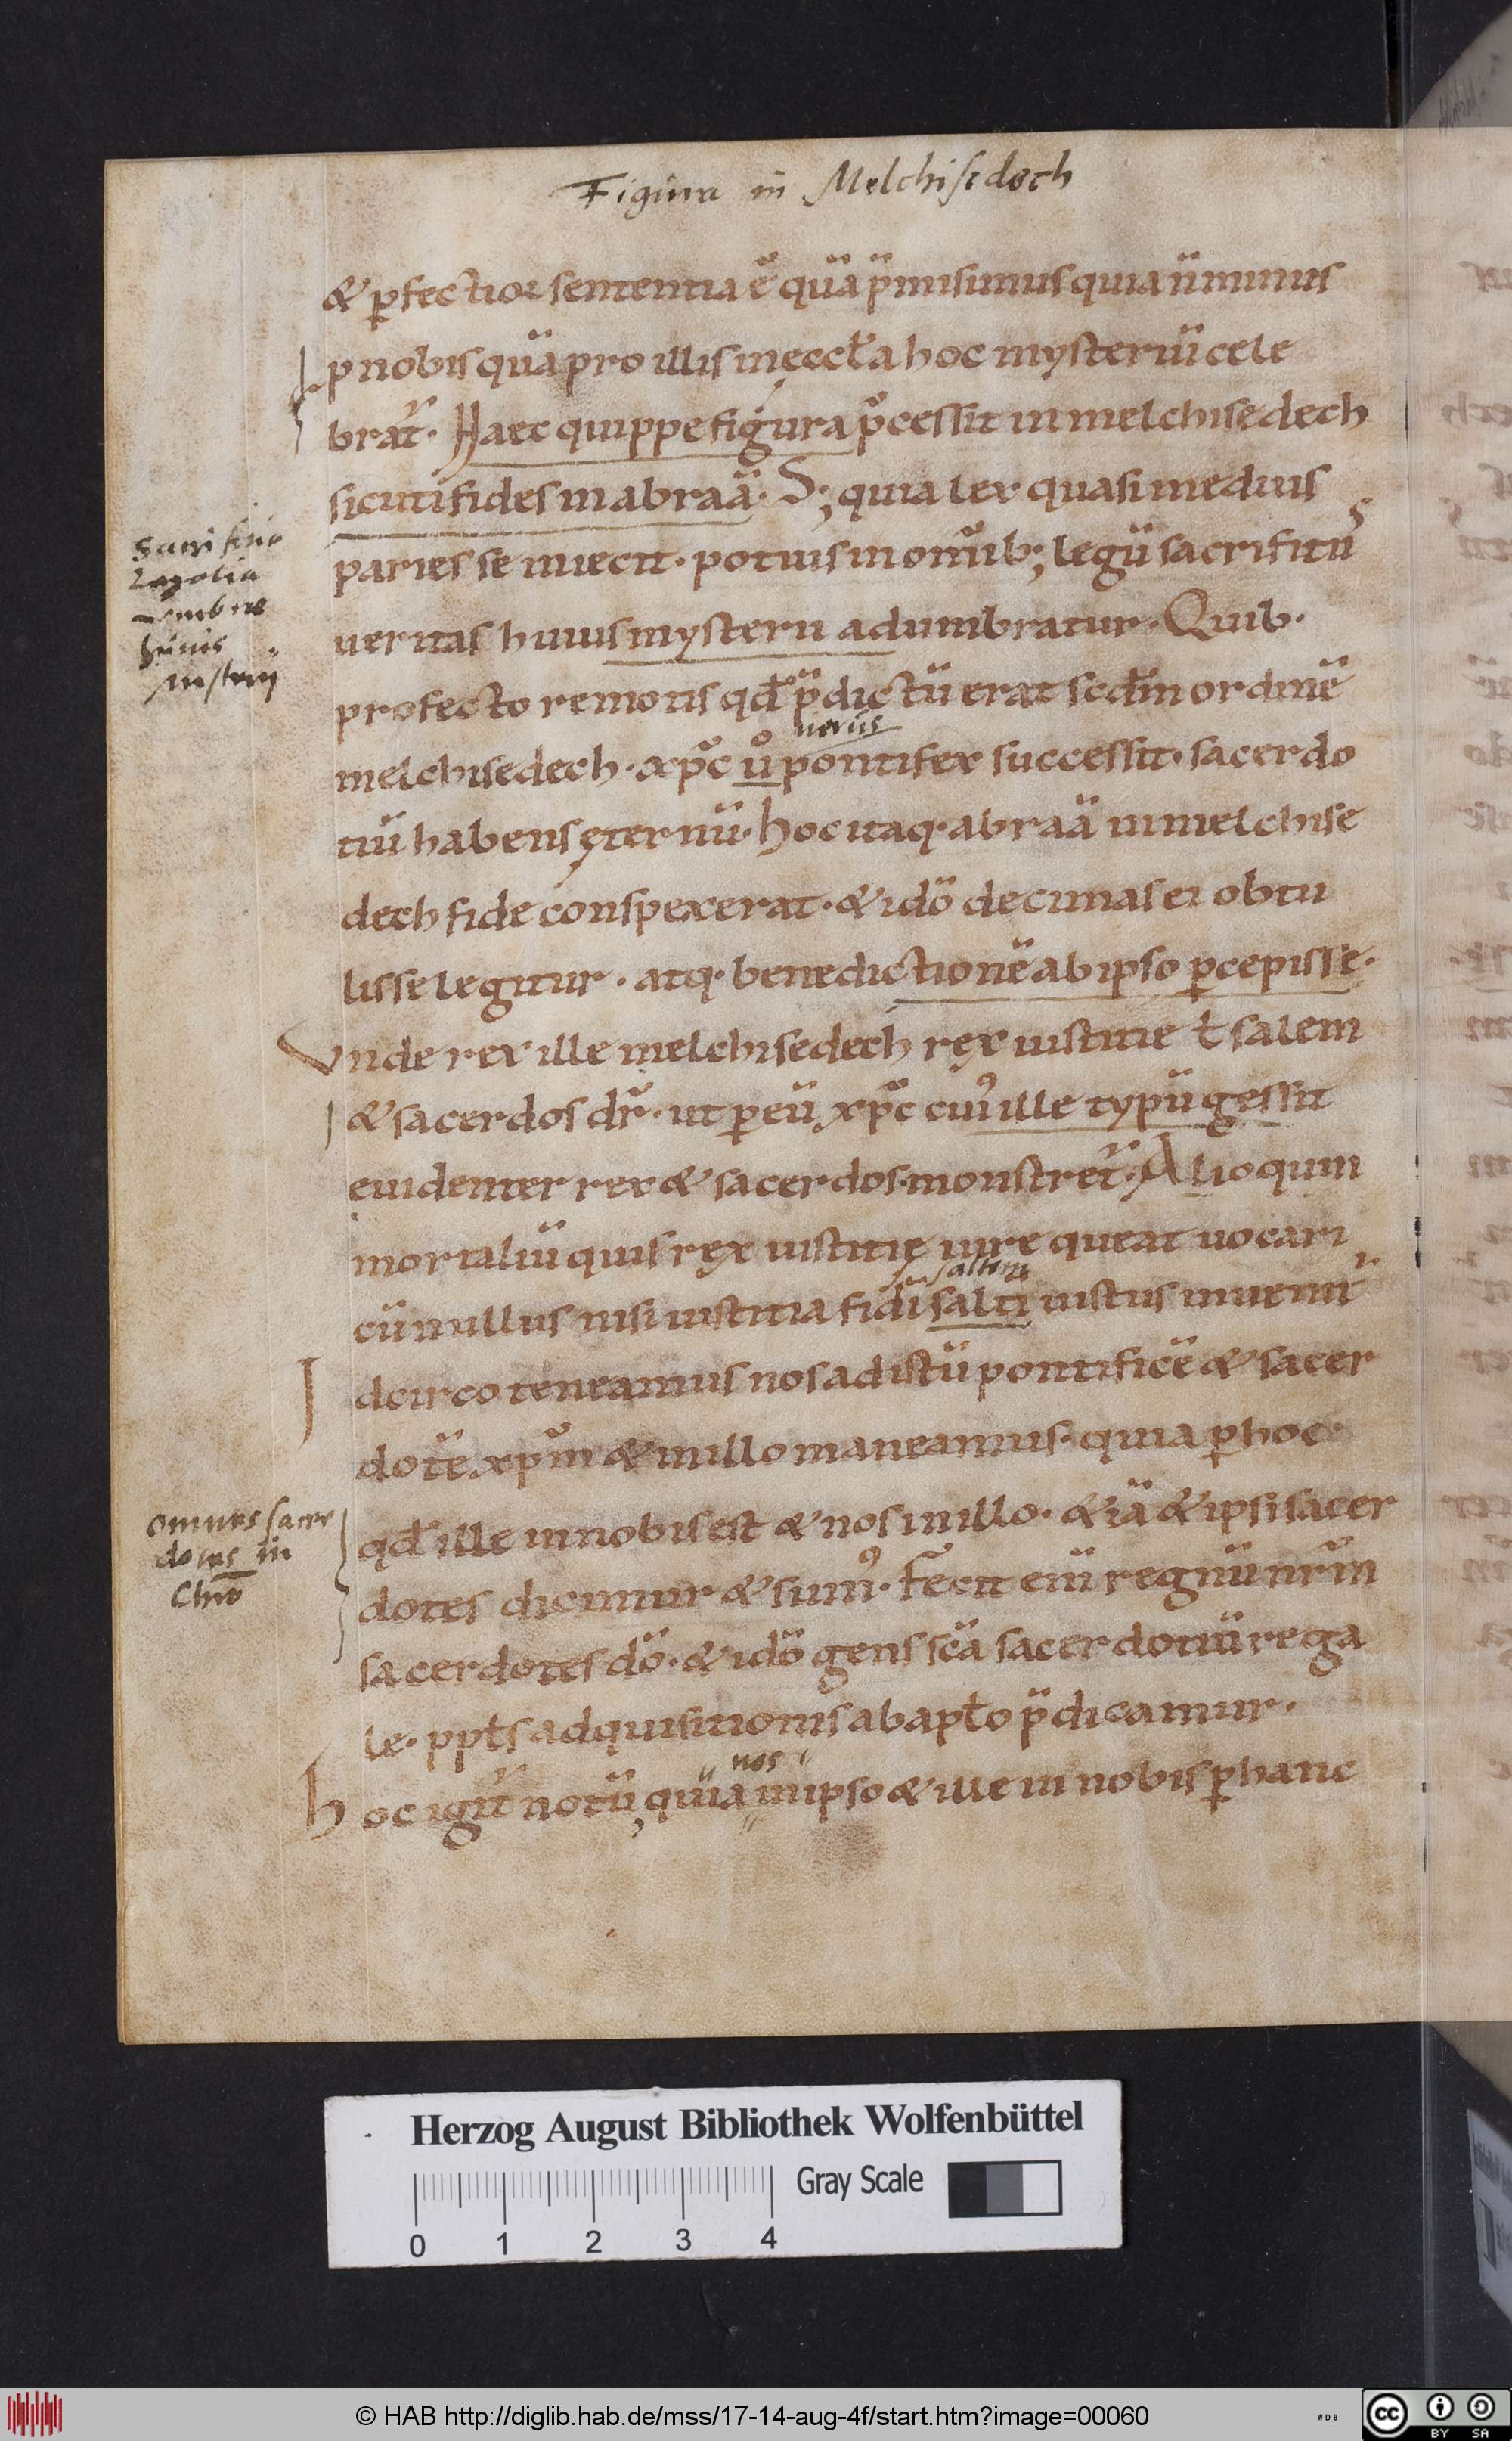 Figura in Melchisedech
& ꝑfectior sententia ē quā p̄misimus quia n̄ minus
p nobis quā pro illis in ęccła hoc mysteriū cele
brat̄. Haec quippe figura p̄cessit in melchisedech
sicuti fides in abraā. S; quia lex quasi medius
paries se iniecit. potius in omīb; legū sacrifitiis
ueritas huius mysterii adumbratur. Quib.
profecto remotis qđ p̄dictū erat scdm̄ ordinē
uerus
melchisedech. xp̄c ů pontifex successit. sacerdo
tiū habens ęternū. hoc itaq. abraā in melchise
dech fide conspexerat. & idō decimas ei obtu
lisse legitur. atq. benedictionē ab ipso ꝑcepisse.
Vnde rex ille melchisedech rex iustitie ł salem
& sacerdos dr̄. ut ꝑ eū xp̄c cui᾿ ille typū gessit
euidenter rex & sacerdos monstret̄. Alioquin
mortaliū quis rex iustitię iure queat uocari
saltem
cū nullus nisi iustitia fidi salti iustus inuenit̄
Idcirco teneamus nos ad istū pontificē & sacer
dotē xpm̄ & in illo maneamus. quia ꝑ hoc
qđ ille in nobis est & nos in illo. & iā & ipsi sacer
dotes dicimur & sum᾿. Fecit eni regnū nrm̄
sacerdotes dō. & idō gens scā sacerdotiū rega
le. ppłs adquisitionis ab apło p̄dicamur.
nos
hoc igit̄ notū, quia in ipso & ille in nobis ꝑ hanc
huius
omnes sacer
dotes in
Chrō
Herzog August Bibliothek Wolfenbüttel
Gray Scale
0 1 2 3 4
© HAB http://diglib.hab.de/mss/17-14-aug-4f/start.htm?image=00060
WDB
cc BY SA